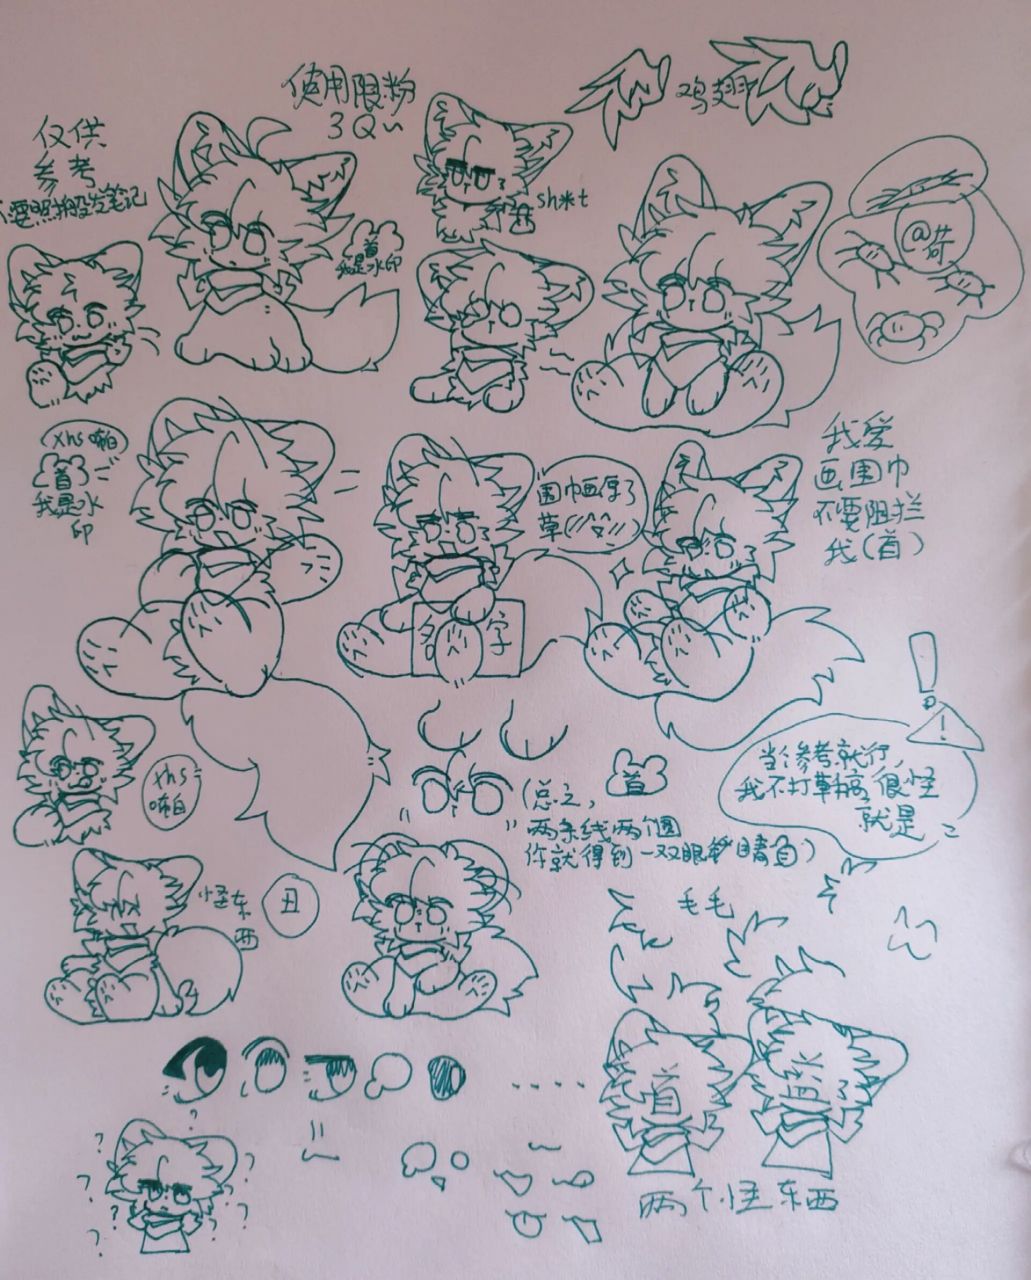 使用限粉
3Q~
鸡翅
仅供
参考
不要照搬发笔记
sh*t
首
我是水印
@苛
xhs啪
首
我是水
印
围巾画厚了
草(//^//)
我爱
画围巾
不要阻拦
我(首)
名字
当参考就行,
我不打草稿,很怪
就是
!
xhs
啪
首
(总之,
两条线两个圈
你就得到一双眼睛自)
怪东
西
丑
毛毛
首
水印
? ? ? ? ? ? ?
两个怪东西